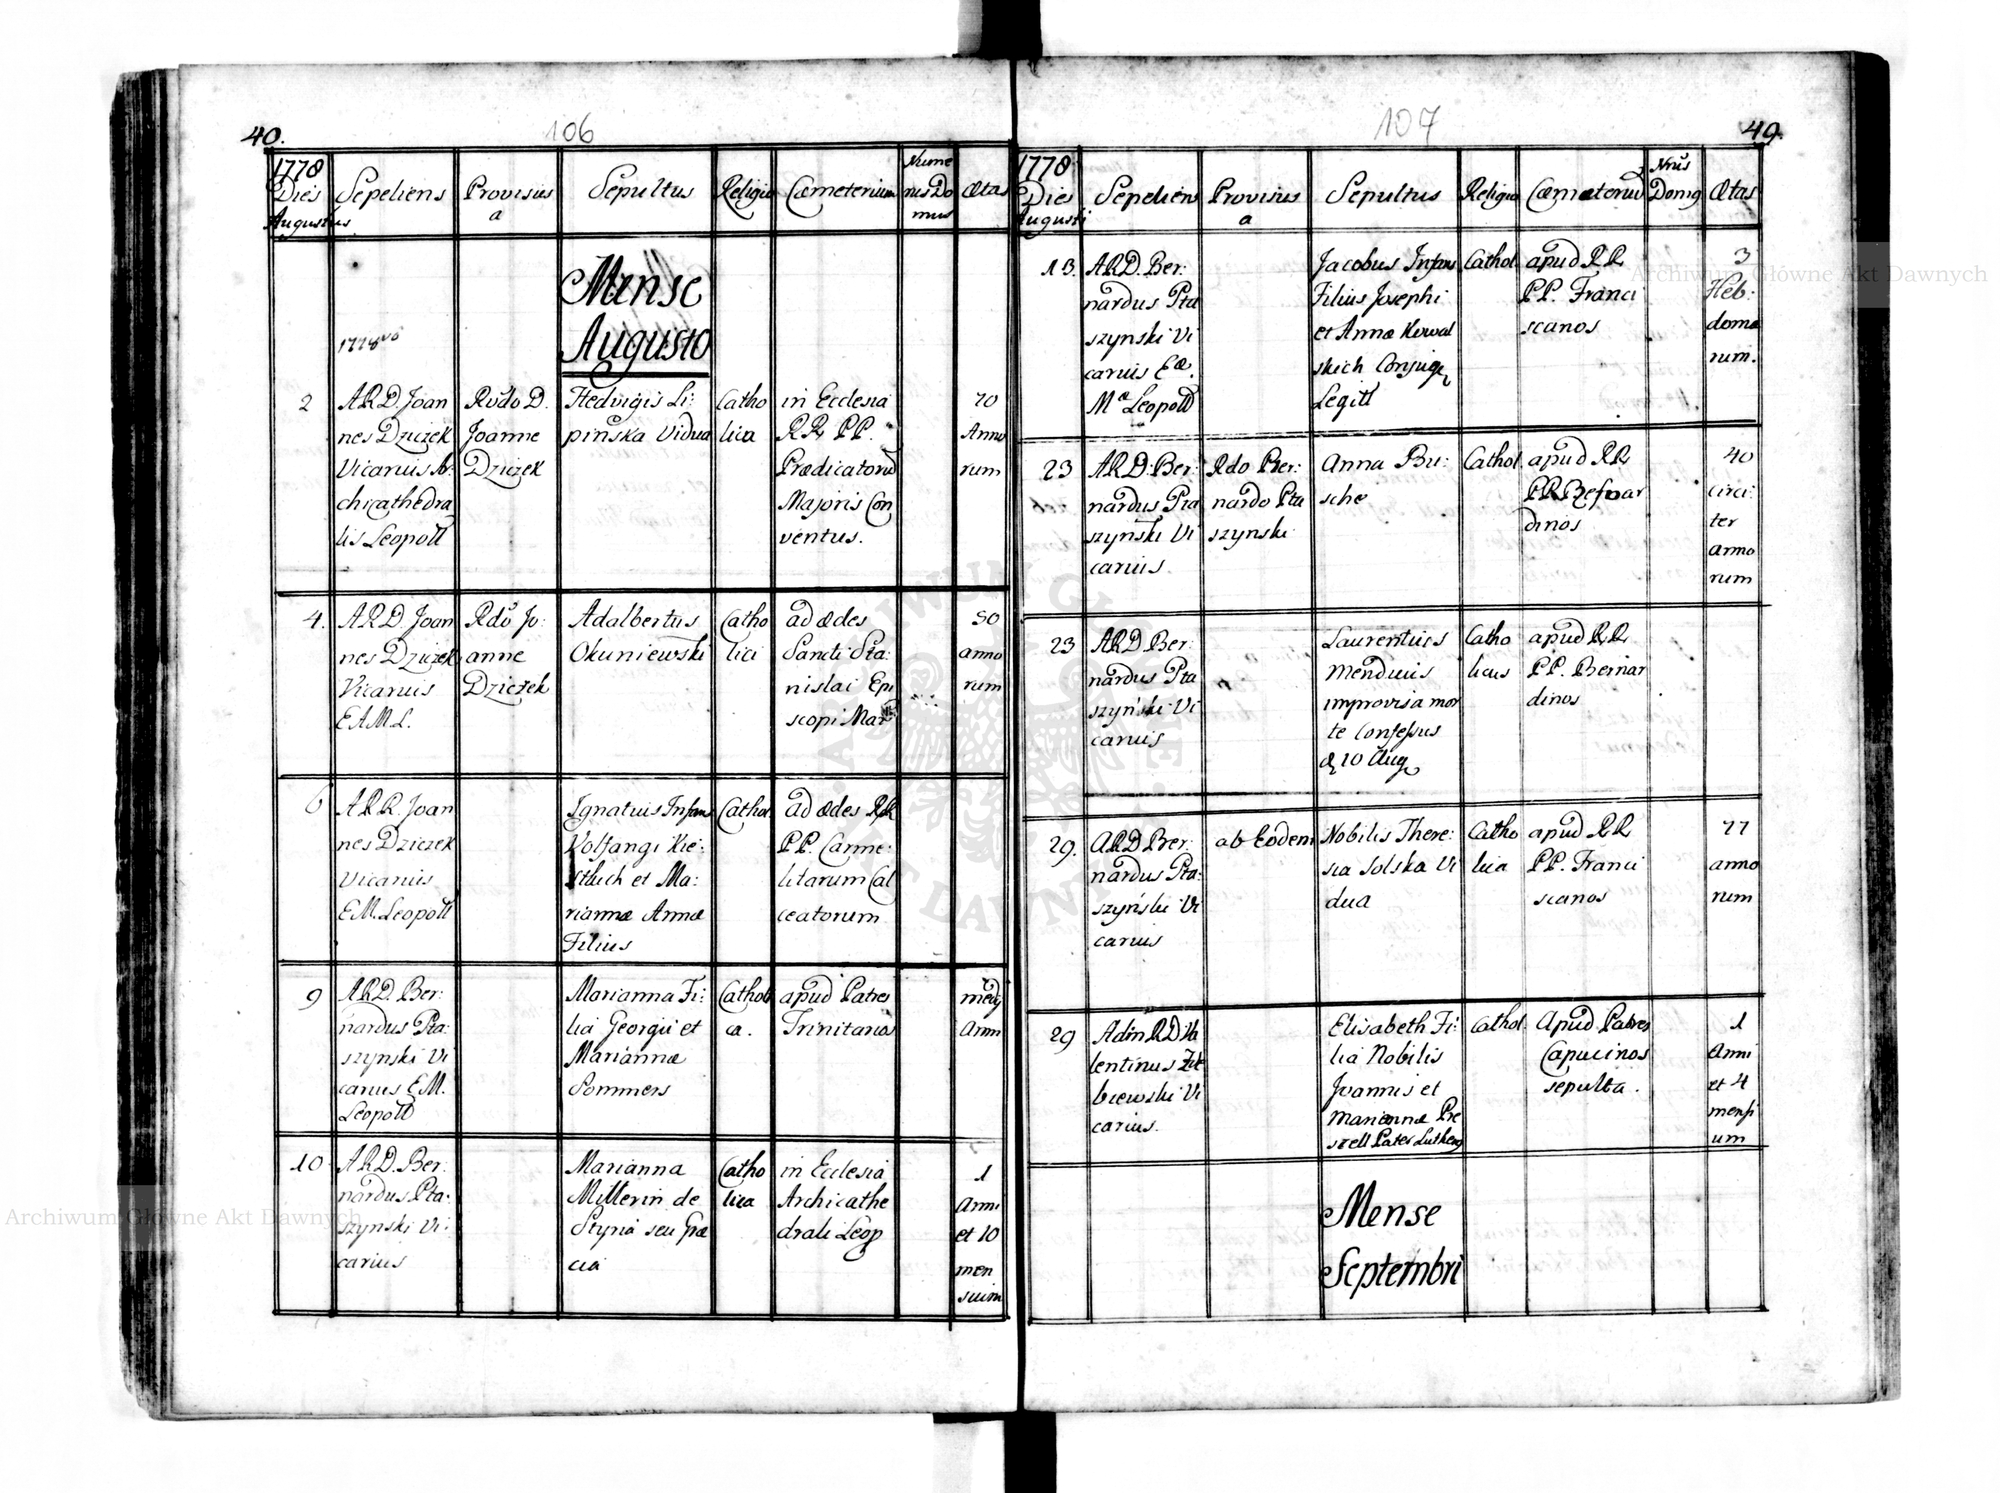 40.
106
1778
Dies
Augustus
Sepeliens
Provisus
a
Sepultus
Religio
Cæmeterium
Nume
rus Do
mus
Ætas
Mense
Augusto
2
A.R.D. Joan
nes Dziczek
Vicarius Ar:
chicathedra
lis Leopoll
Rvdo D.
Joanne
Dziczek
Hedvigis Li:
pińska Vidua
Catho
lica
in Ecclesia
RR. PP.
Prædicatorũ
Majoris Con
ventus.
70
Anno
rum
4.
A.R.D. Joan
nes Dziczek
Vicarius
E.A.M.L.
Rdo Jo:
anne
Dziczek
Adalbertus
Okuniewski
Catho
lici
ad ædes
Sancti Sta:
nislai Epi
scopi Mar
50
anno
rum
6
A.R.R. Joan
nes Dziczek
Vicarius
E.M. Leopoll
Ignatius Infans
Wolfangi
et Ma:
riannæ Annæ
Filius
Cathol.
ad ædes RR
PP. Carme:
litarum Cal
ceatorum
9
A.R.D. Ber:
nardus Pta:
szynski Vi
carius E.M.
Leopoll
Marianna Fi:
lia Georgii et
Mariannæ
Sommers
Catholi
ca.
apud Patres
Trinitarios
medii
Anni
10
A.R.D. Ber:
nardus Pta:
szynski Vi:
carius
Marianna
Millerin de
Styria seu Græ
cia
Catho
lica
in Ecclesia
Archicathe
drali Leop
1
Anni
et 10
men
sium
107
49.
1778
Dies
Augusti
Sepeliens
Provisus
a
Sepultus
Religio
Cæmeteriũ
Nrũs
Domg
Ætas
13.
A.R.D. Ber:
nardus Pta
szynski Vi
carius Eæ.
Mæ Leopoll
Jacobus Infans
Filius Josephi
et Annæ Kowal
skich Conjug
Legitt
Cathol
apud RR
PP. Franci
scanos
3
Heb:
doma
rum.
23
A.R.D. Ber:
nardus Pta
szynski Vi
carius.
Rdo Ber:
nardo Pta
szynski
Anna Bu:
sche
Cathol.
apud RR
dinos
40
circi:
ter
anno
rum
23
A.R.D. Ber:
nardus Pta
szyński Vi
carius
Laurentius
Mendicus
improvisa mor
te Consessus
d 10 Aug
Catho
licus
apud RR
PP. Bernar
dinos
29.
A.R.D. Ber:
nardus Pta:
szyński Vi
carius
ab Eodem
Nobilis There:
sia Solska Vi
dua
Catho
lica
apud RR
PP. Franci
scanos
77
anno
rum
29
Adm RD Va
lentinus
biewski Vi
carius.
Elisabeth Fi:
lia Nobilis
Joannis et
Mariannæ Pre
Pater Luthera
Cathol.
Apud Patres
Capucinos
sepulta.
1
Anni
et 4
mensi
um
Mense
Septembri
Archiwum Główne Akt Dawnych
Archiwum Główne Akt Dawnych